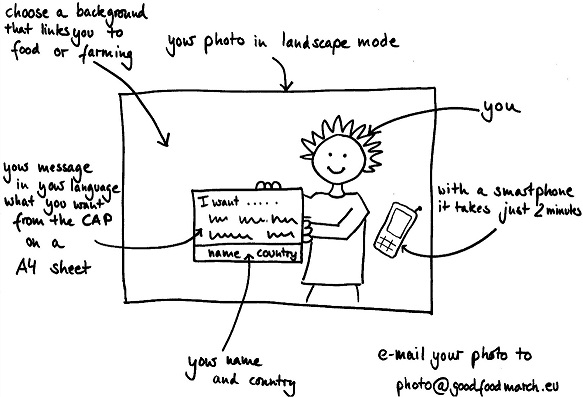 choose a background
that links you to
food or farming
your photo in landscape mode
you
your message
in your language
what you want
from the CAP
on a
A4 sheet
I want .....
name, country
with a smartphone
it takes just 2 minutes
your name
and country
e-mail your photo to
photo@goodfoodmarch.eu